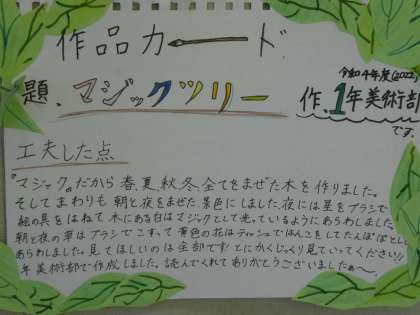 作品カード
題.マジックツリー
令和4年度(2022)
作.1年美術部
です。
工夫した点
"マジック"だから春、夏、秋、冬、全てをまぜた木を作りました。
そしてまわりも朝と夜をまぜた景色にしました。夜には星をブラシで
絵の具をはねて木にある白はマジックとして光っているようにあらわしました。
朝と夜の草はブラシでこすって黄色の花はティッシュではんこをしてたんぽぽとし
あらわしました。見てほしいのは全部です!とにかくじっくり見ていってください!!
年美術部で作成しました。読んでくれてありがとうございましたぁ〜。